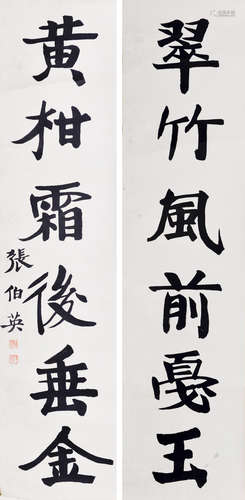 翠竹風前戞玉
黄柑霜後垂金
張伯英